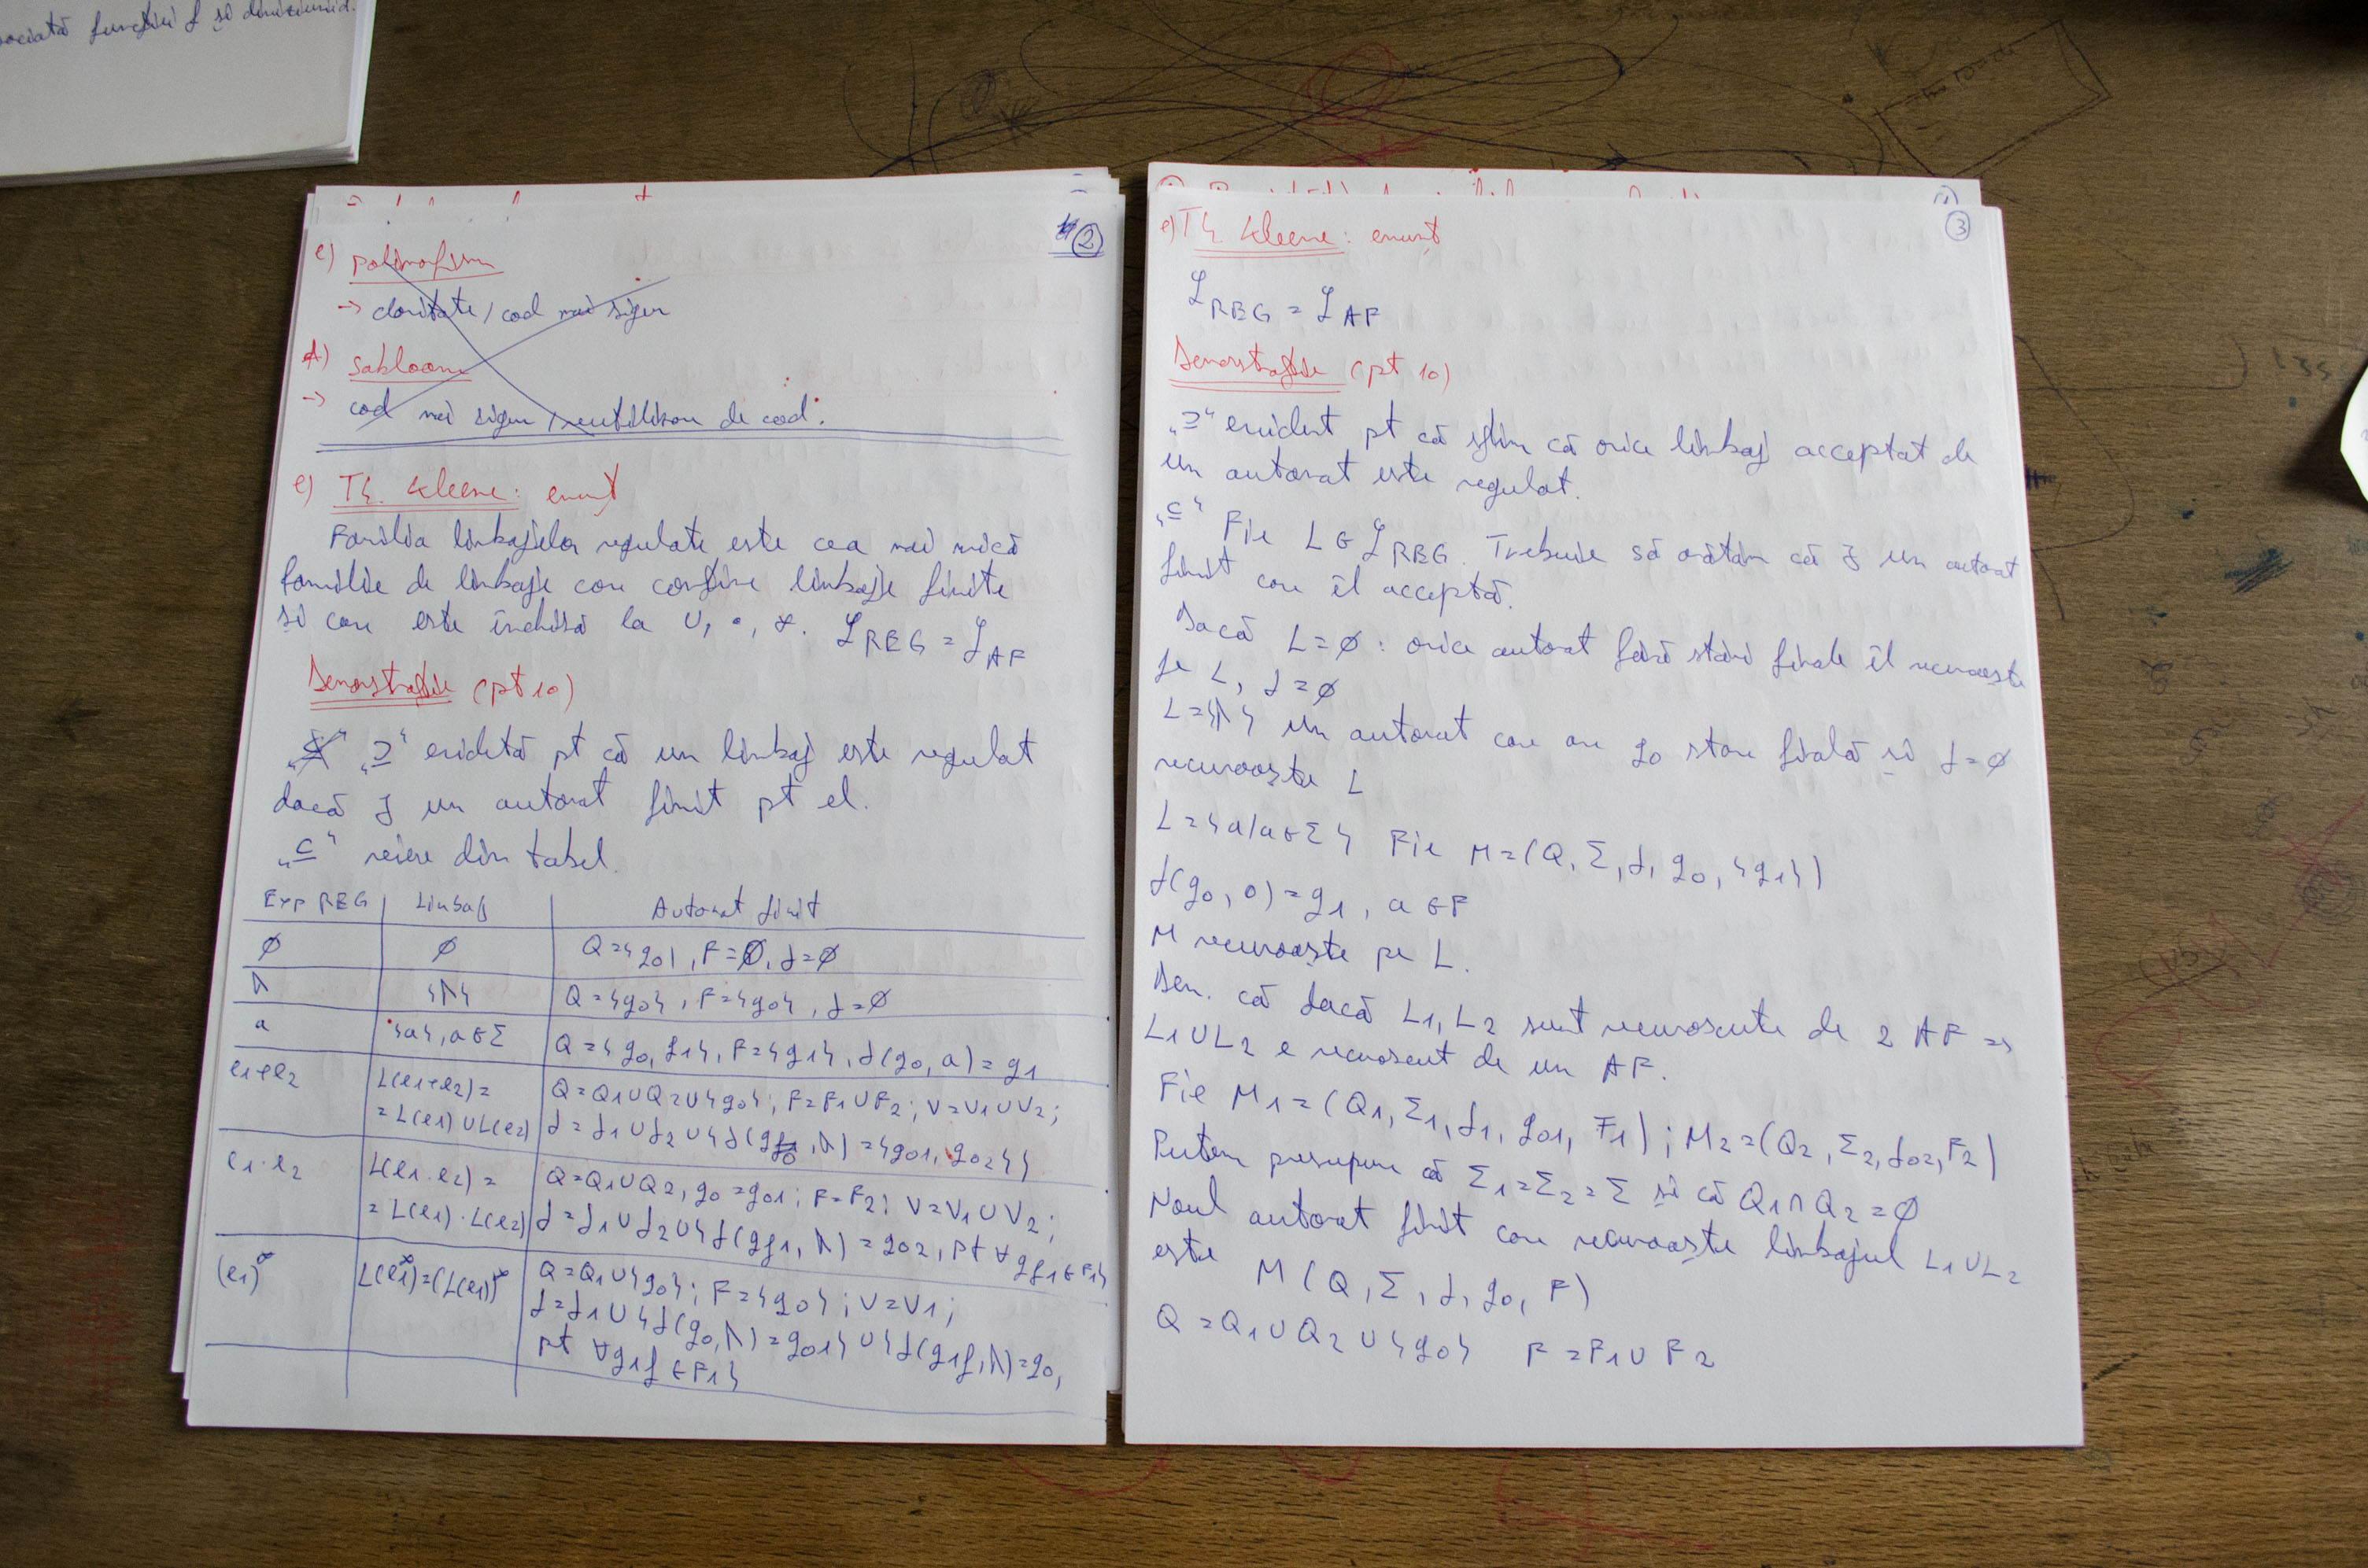 funcției f și
②
c) polimorfism
→ claritate, cod mai sigur
d) șabloane
→ cod mai sigur, reutilizare de cod.
e) Th. Kleene: enunț
Familia limbajelor regulate este cea mai mică
familie de limbaje care conține limbaje finite
și care este închisă la ∪, •, *. ℒREG = ℒAF
Demonstrație (pt 10)
„⊇" evidentă pt că un limbaj este regulat
dacă ∃ un automat finit pt el.
„⊆" reiese din tabel.
Exp REG | Limbaj | Automat finit
∅ | ∅ | Q={q0}, F=∅, δ=∅
Λ | {Λ} | Q={q0}, F={q0}, δ=∅
a | {a}, a∈Σ | Q={q0, q1}, F={q1}, δ(q0, a)=q1
e1+e2 | L(e1+e2)= | Q=Q1∪Q2∪{q0}; F=F1∪F2; V=V1∪V2;
=L(e1)∪L(e2) | δ=δ1∪δ2∪{δ(q0, Λ)={q01, q02}}
e1·e2 | L(e1·e2)= | Q=Q1∪Q2, q0=q01; F=F2; V=V1∪V2;
=L(e1)·L(e2) | δ=δ1∪δ2∪{δ(qf1, Λ)=q02, pt ∀qf1∈F1}
(e1)* | L(e1*)=(L(e1))* | Q=Q1∪{q0}; F={q0}; V=V1;
δ=δ1∪{δ(q0,Λ)=q01}∪{δ(q1f,Λ)=q0,
pt ∀q1f∈F1}
③
e) Th. Kleene: enunț
ℒREG = ℒAF
Demonstrație (pt 10)
„⊇" evident pt că știm că orice limbaj acceptat de
un automat este regulat.
„⊆" Fie L∈ℒREG. Trebuie să arătăm că ∃ un automat
finit care îl acceptă.
Dacă L=∅: orice automat fără stări finale îl recunoaște
pe L, δ=∅
L={Λ} un automat care are q0 stare finală și δ=∅
recunoaște L
L={a/a∈Σ} Fie M=(Q, Σ, δ, q0, {q1})
δ(q0, a)=q1, a∈F
M recunoaște pe L.
Dem. că dacă L1, L2 sunt recunoscute de 2 AF ⇒
L1∪L2 e recunoscut de un AF.
Fie M1=(Q1, Σ1, δ1, q01, F1); M2=(Q2, Σ2, δ02, F2)
Putem presupune că Σ1=Σ2=Σ și că Q1∩Q2=∅
Noul automat finit care recunoaște limbajul L1∪L2
este M(Q, Σ, δ, q0, F)
Q=Q1∪Q2∪{q0} F=F1∪F2